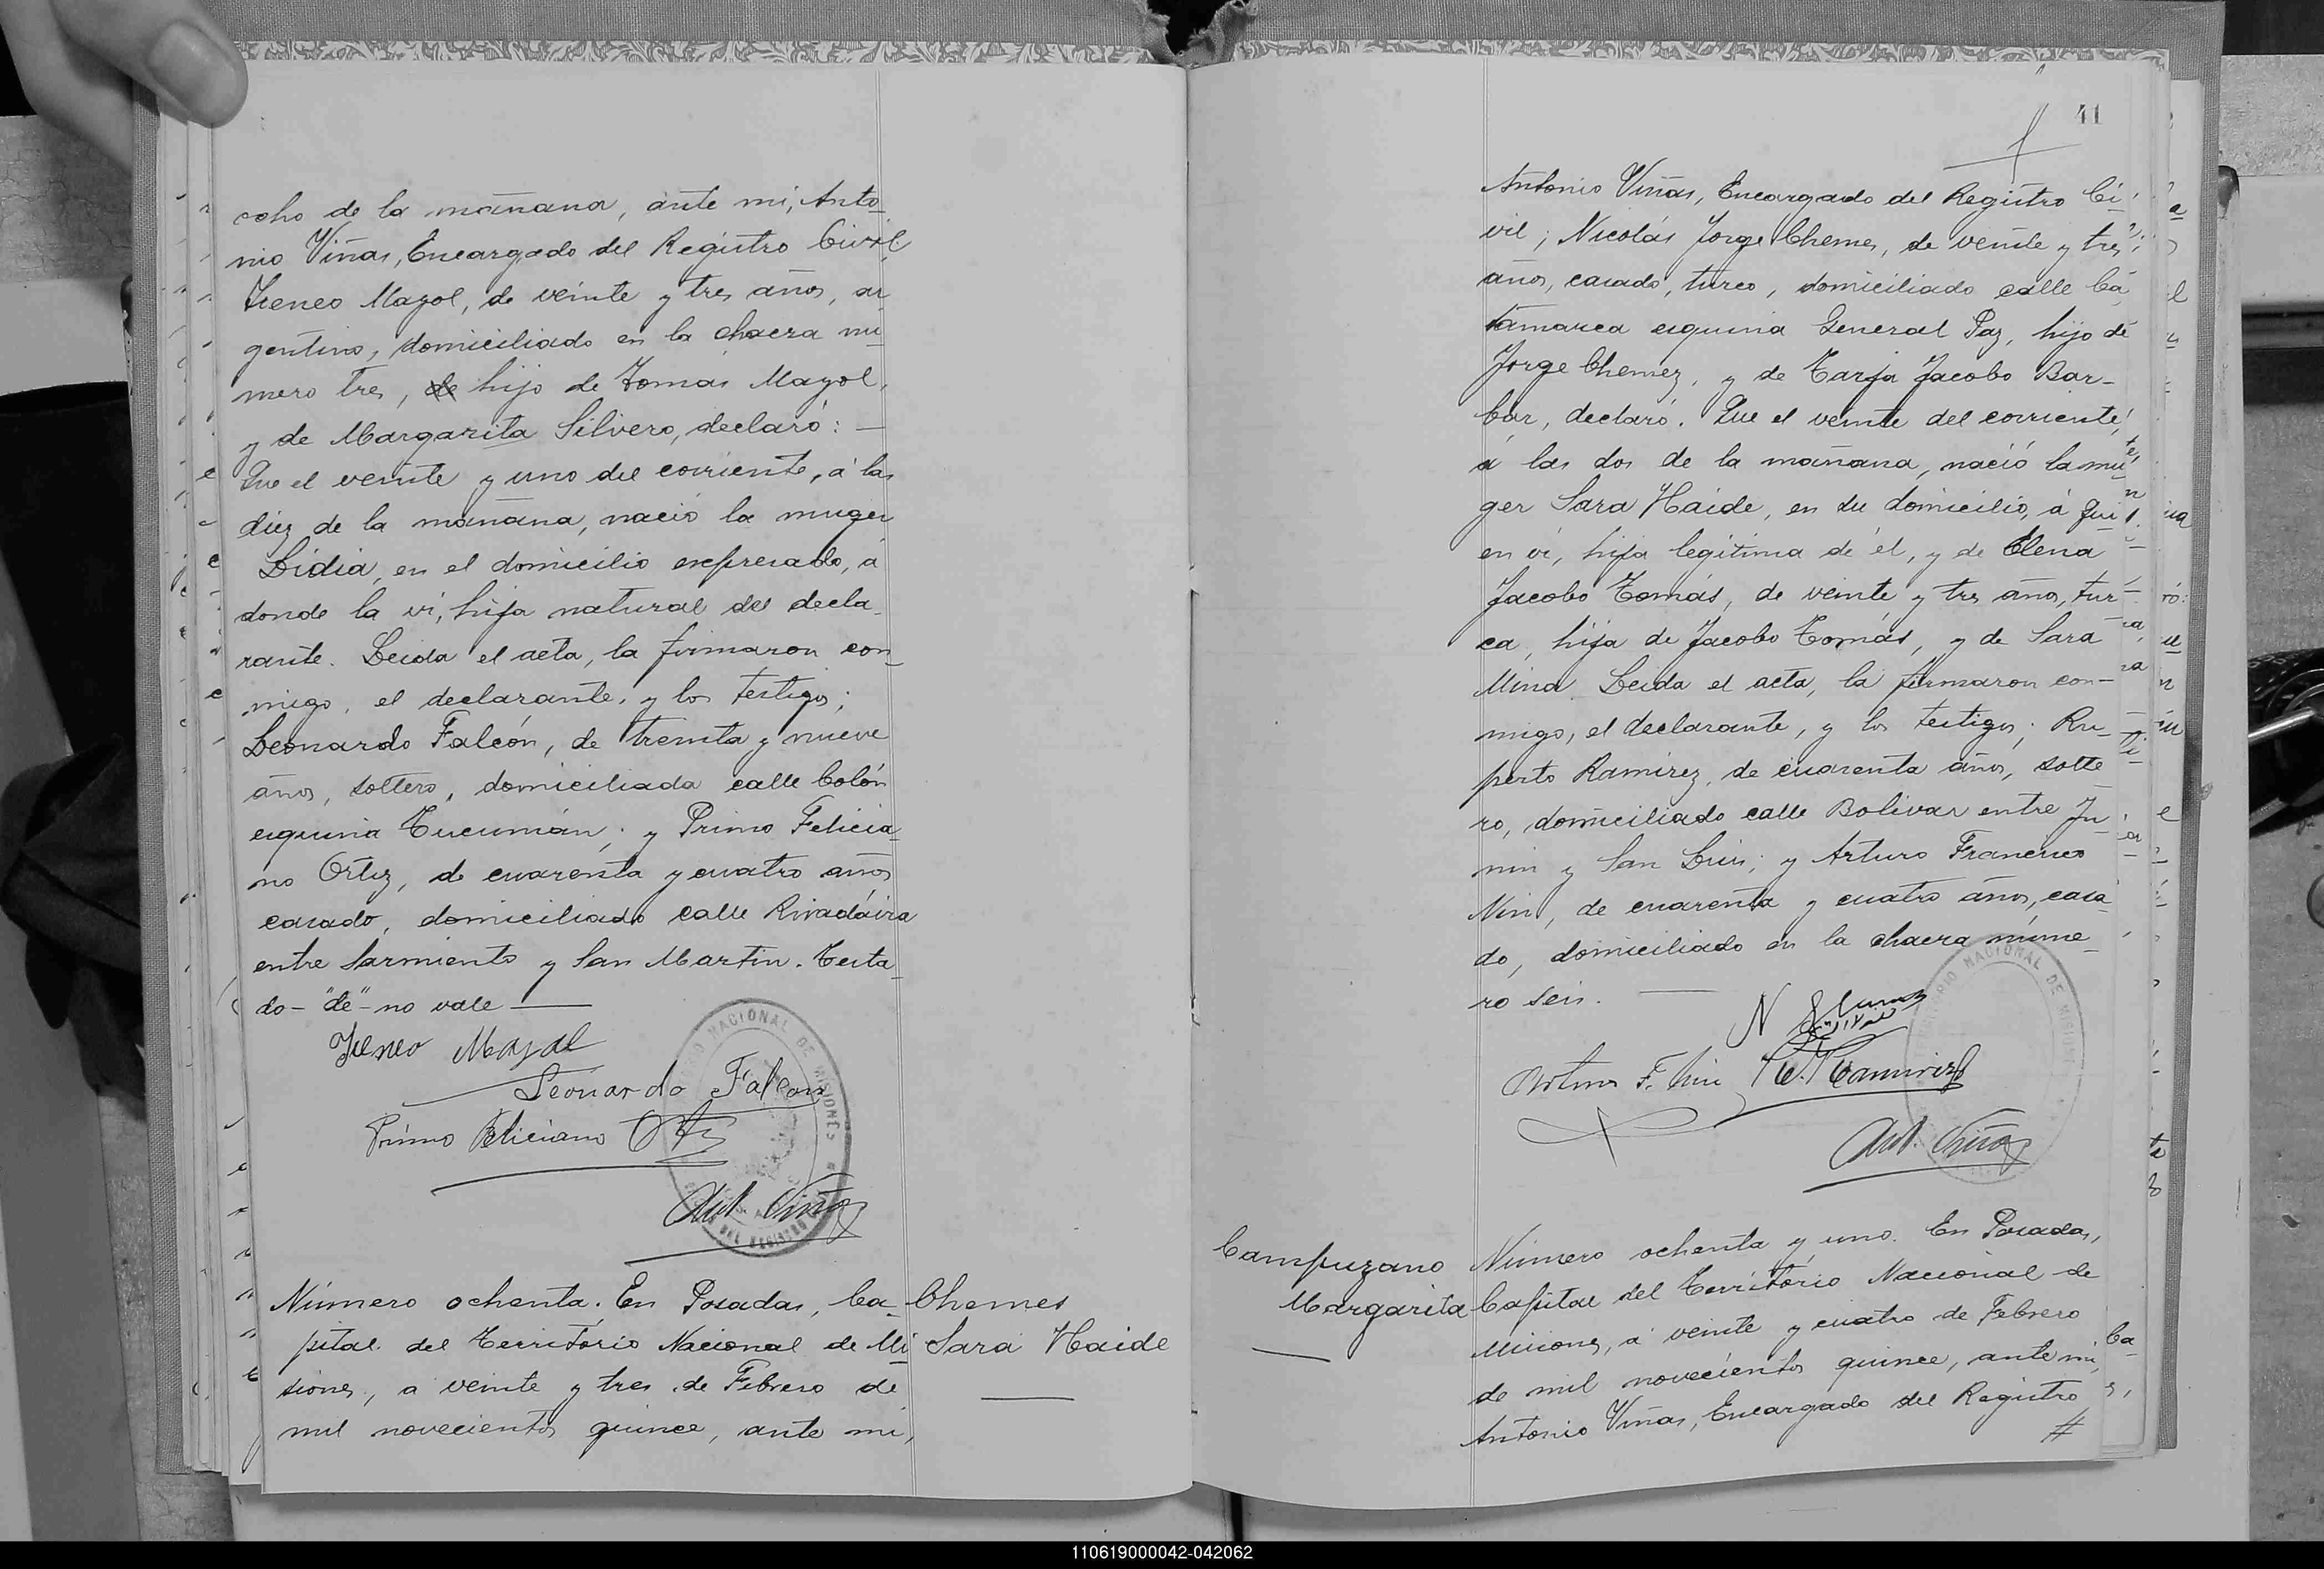 ocho de la mañana, ante mi, Anto-
nio Viñas, Encargado del Registro Civil,
Ireneo Mayol, de veinte y tres años, ar
gentino, domiciliado en la chacra nu
mero tres, de hijo de Tomas Mayol,
y de Margarita Silvero, declaró: —
Que el veinte y uno del corriente, á las
diez de la mañana, nació la muger
Lidia, en el domicilio expresado, á
donde la ví, hija natural del decla-
rante. Leida el acta, la firmaron con-
migo, el declarante, y los testigos;
Leonardo Falcón, de treinta y nueve
años, soltero, domiciliada calle Colón
esquina Tucumán; y Primo Felicia
no Ortiz, de cuarenta y cuatro años
casado, domiciliado calle Rivadáira
entre Sarmiento y San Martin. Testa-
do- "de" - no vale —
Ireneo Mayol
Leonardo Falcon
Primo Feliciano Ortiz
NACIONAL DE MISIONES
Ant. Viñas
Número ochenta. En Posadas, Ca-
pital del Territorio Nacional de Mi
siones, a veinte y tres de Febrero de
mil novecientos quince, ante mi,
Chemes
Sara Haide
41
Antonio Viñas, Encargado del Registro Ci-
vil; Nicolás Jorge Chemes, de veinte y tres
años, casado, turco, domiciliado calle Ca
tamarca esquina General Paz, hijo de
Jorge Chemez, y de Tarja Jacobo Bar-
bar, declaró. Que el veinte del corriente,
á las dos de la mañana, nació la mu
ger Sara Haide, en su domicilio, á qui
en ví, hija legítima de él, y de Elena
Jacobo Tomás, de veinte y tres años, tur
ca, hija de Jacobo Tomás, y de Sara
Mina. Leida el acta, la firmaron con-
migo, el declarante, y los testigos; Ru-
perto Ramirez, de cuarenta años, solte
ro, domiciliado calle Bolivar entre Ju-
nin y San Luis; y Arturo Francisco
Nin, de cuarenta y cuatro años, casa
do, domiciliado en la chacra núme-
ro seis. —
Arturo F. Nin R. Ramirez
NACIONAL DE MISIONES
Ant. Viñas
Campuzano
Margarita
Número ochenta y uno. En Posadas,
Capital del Territorio Nacional de
Misiones, á veinte y cuatro de Febrero
de mil novecientos quince, ante mi,
Antonio Viñas, Encargado del Registro
#
110619000042-042062